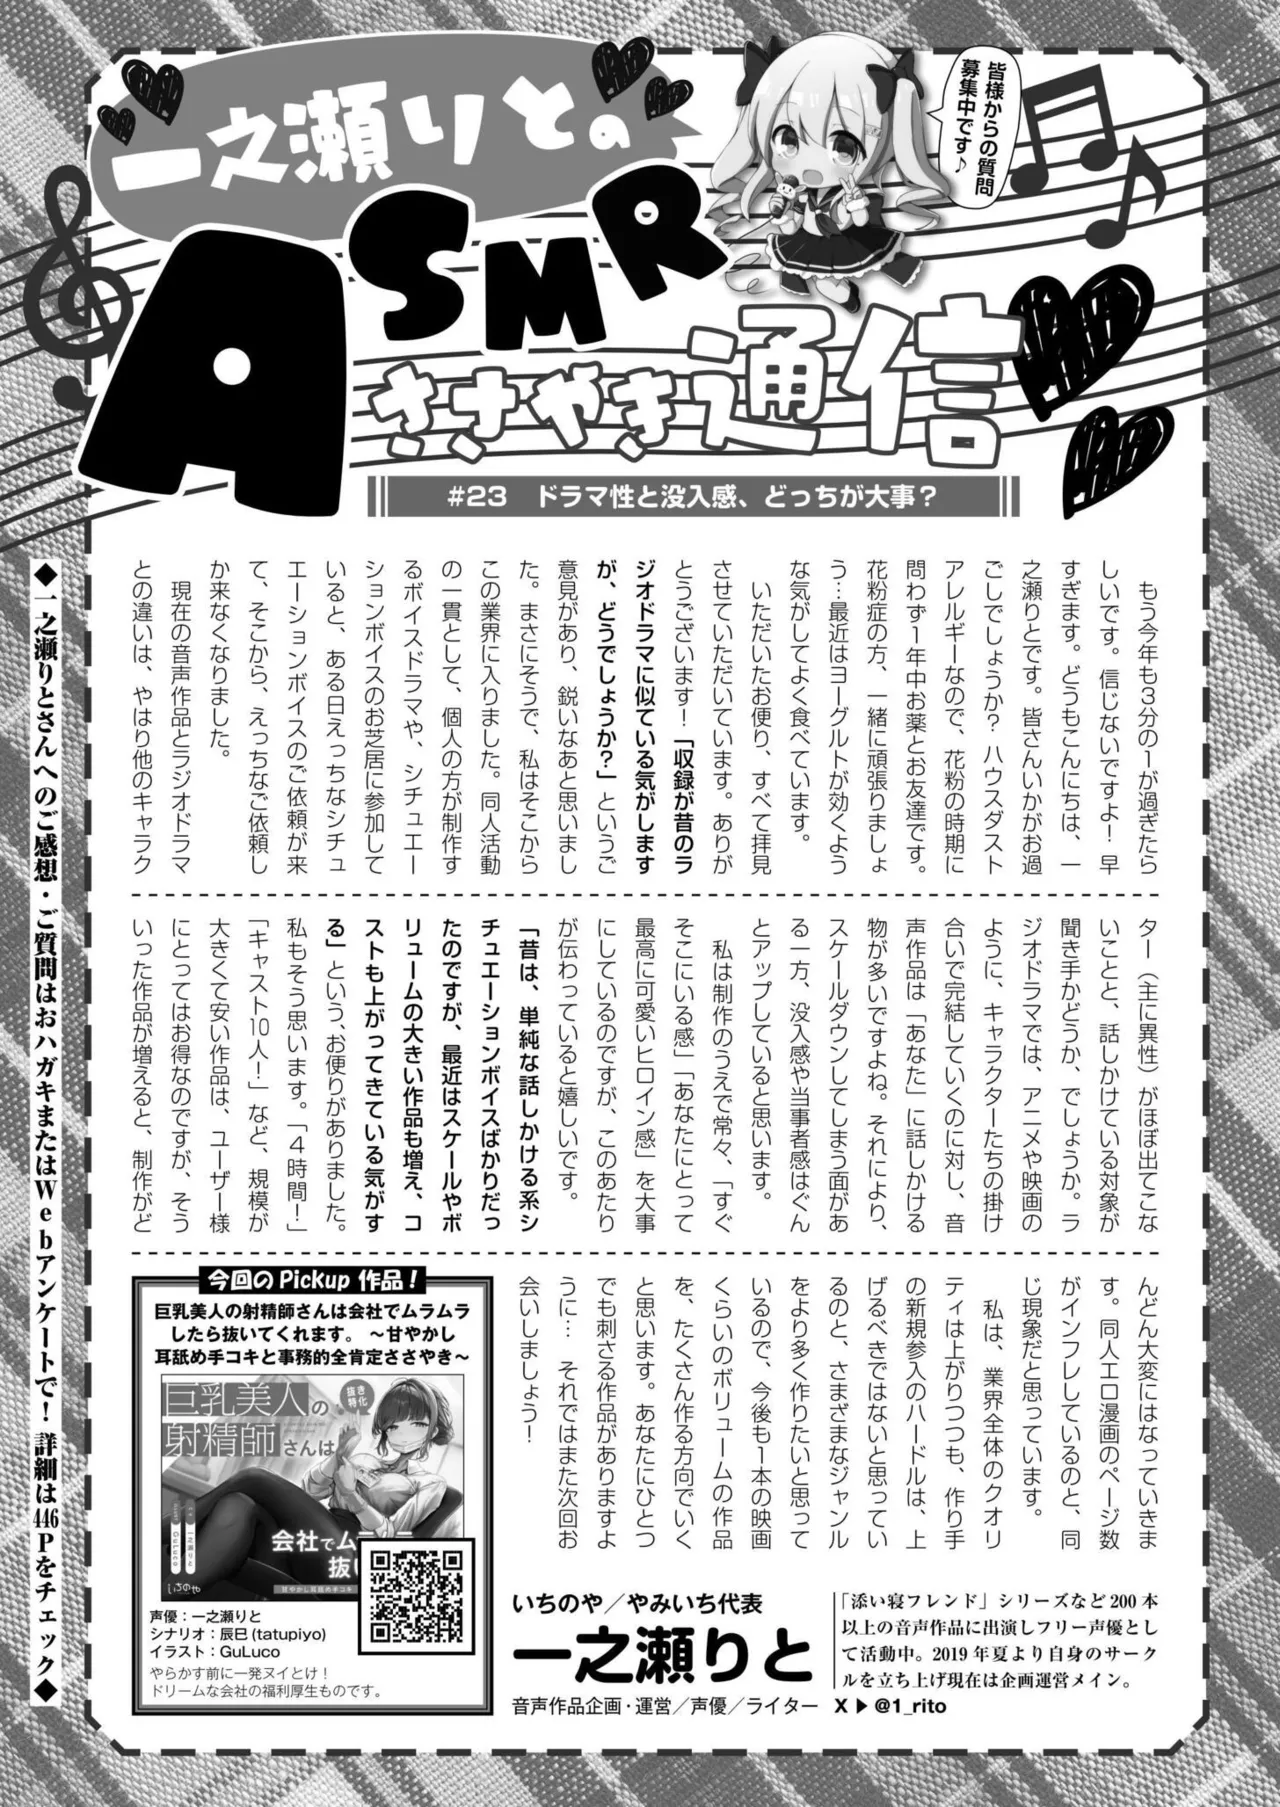 一之瀬りとの
ASMR
ささやき通信
皆様からの質問
募集中です♪
#23 ドラマ性と没入感、どっちが大事？
もう今年も3分の1が過ぎたら
しいです。信じないですよ！ 早
すぎます。どうもこんにちは、一
之瀬りとです。皆さんいかがお過
ごしでしょうか？ ハウスダスト
アレルギーなので、花粉の時期に
問わず1年中お薬とお友達です。
花粉症の方、一緒に頑張りましょ
う…最近はヨーグルトが効くよう
な気がしてよく食べています。
いただいたお便り、すべて拝見
させていただいています。ありが
とうございます！「収録が昔のラ
ジオドラマに似ている気がします
が、どうでしょうか？」というご
意見があり、鋭いなあと思いまし
た。まさにそうで、私はそこから
この業界に入りました。同人活動
の一貫として、個人の方が制作す
るボイスドラマや、シチュエー
ションボイスのお芝居に参加して
いると、ある日えっちなシチュ
エーションボイスのご依頼が来
て、そこから、えっちなご依頼し
か来なくなりました。
現在の音声作品とラジオドラマ
との違いは、やはり他のキャラク
ター（主に異性）がほぼ出てこな
いことと、話しかけている対象が
聞き手かどうか、でしょうか。ラ
ジオドラマでは、アニメや映画の
ように、キャラクターたちの掛け
合いで完結していくのに対し、音
声作品は「あなた」に話しかける
物が多いですよね。それにより、
スケールダウンしてしまう面があ
る一方、没入感や当事者感はぐん
とアップしていると思います。
私は制作のうえで常々、「すぐ
そこにいる感」「あなたにとって
最高に可愛いヒロイン感」を大事
にしているのですが、このあたり
が伝わっていると嬉しいです。
「昔は、単純な話しかける系シ
チュエーションボイスばかりだっ
たのですが、最近はスケールやボ
リュームの大きい作品も増え、コ
ストも上がってきている気がす
る」という、お便りがありました。
私もそう思います。「4時間！」
「キャスト10人！」など、規模が
大きくて安い作品は、ユーザー様
にとってはお得なのですが、そう
いった作品が増えると、制作がど
んどん大変にはなっていきま
す。同人エロ漫画のページ数
がインフレしているのと、同
じ現象だと思っています。
私は、業界全体のクオリ
ティは上がりつつも、作り手
の新規参入のハードルは、上
げるべきではないと思ってい
るのと、さまざまなジャンル
をより多く作りたいと思って
いるので、今後も1本の映画
くらいのボリュームの作品
を、たくさん作る方向でいく
と思います。あなたにひとつ
でも刺さる作品がありますよ
うに… それではまた次回お
会いしましょう！
今回のPickup作品！
巨乳美人の射精師さんは会社でムラムラ
したら抜いてくれます。 ～甘やかし
耳舐め手コキと事務的全肯定ささやき～
巨乳美人の
射精師さんは
抜き
特化
会社でム
抜い
一之瀬りと
GuLuco
いちのや
声優：一之瀬りと
シナリオ：辰巳(tatupiyo)
イラスト：GuLuco
やらかす前に一発ヌイとけ！
ドリームな会社の福利厚生ものです。
いちのや／やみいち代表
一之瀬りと
音声作品企画・運営／声優／ライター
「添い寝フレンド」シリーズなど200本
以上の音声作品に出演しフリー声優とし
て活動中。2019年夏より自身のサーク
ルを立ち上げ現在は企画運営メイン。
X▶@1_rito
◆一之瀬りとさんへのご感想・ご質問はおハガキまたはWebアンケートで！ 詳細は446Pをチェック◆